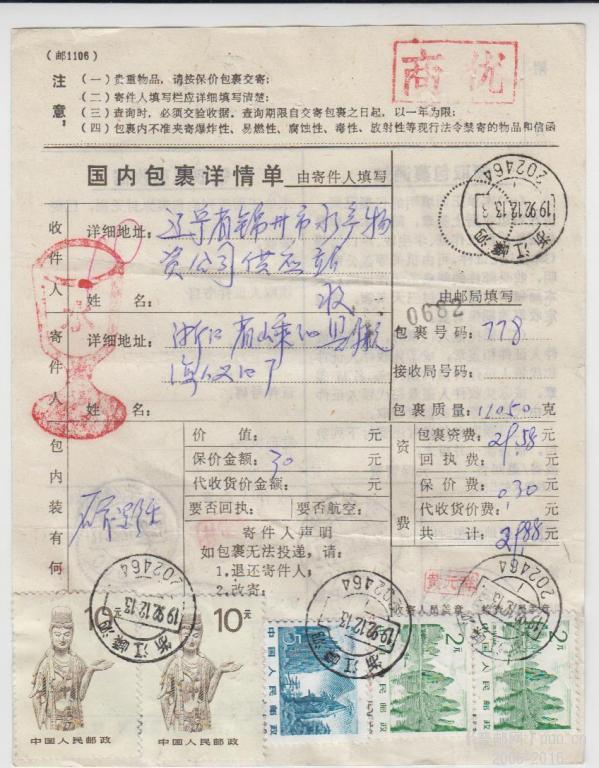 (邮1106)
商优
注意：
(一) 贵重物品，请按保价包裹交寄：
(二) 寄件人填写栏应详细填写清楚：
(三) 查询时，必须交验收据，查询期限自交寄包裹之日起，以一年为限：
(四) 包裹内不准夹寄爆炸性、易燃性、腐蚀性、毒性、放射性等现行法令禁寄的物品和信函
国内包裹详情单 由寄件人填写
202464
1992.12.13
浙江嵊泗
收件人
详细地址：辽宁省锦州市水产物
资公司供应站
收
姓 名：
寄件人
详细地址：浙江省嵊泗县
姓 名：
由邮局填写
0682
包裹号码：778
接收局号码：
包裹质量：11050克
包内装有何
价 值： 元
保价金额：30 元
代收货价金额： 元
要否回执： 要否航空：
寄件人声明
如包裹无法投递，请：
1.退还寄件人：
2.改寄：
资费
包裹资费：21.58元
回执费： 元
保价费：0.30元
代收货价费： 元
共计：21.88元
收寄人员盖章
202464
1992.12.13
浙江嵊泗
10元
中国人民邮政
10元
中国人民邮政
5
中国人民邮政
2元
中国人民邮政
2元
中国人民邮政
2006-2016